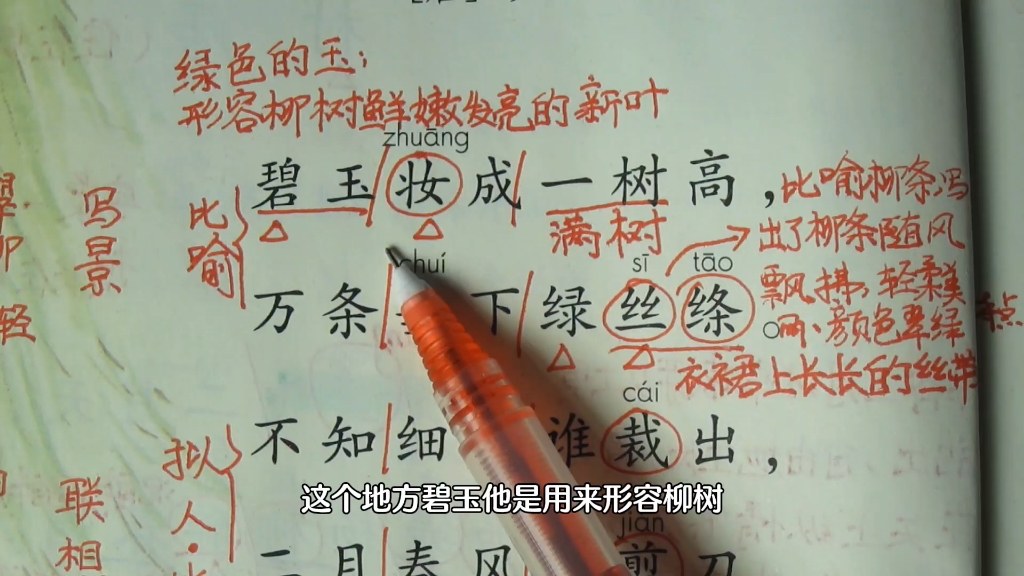 绿色的玉；
形容柳树鲜嫩发亮的新叶
zhuāng
碧玉妆成一树高，
比喻
写景
满树
比喻柳条，写
出了柳条随风
飘拂、轻柔美
丽、颜色翠绿
特点
chuí sī tāo
万条 下绿丝绦。
衣裙上长长的丝带
cái
不知细 谁裁出，
拟人
联
相
轻
这个地方碧玉他是用来形容柳树
jiǎn
二月春风 剪刀